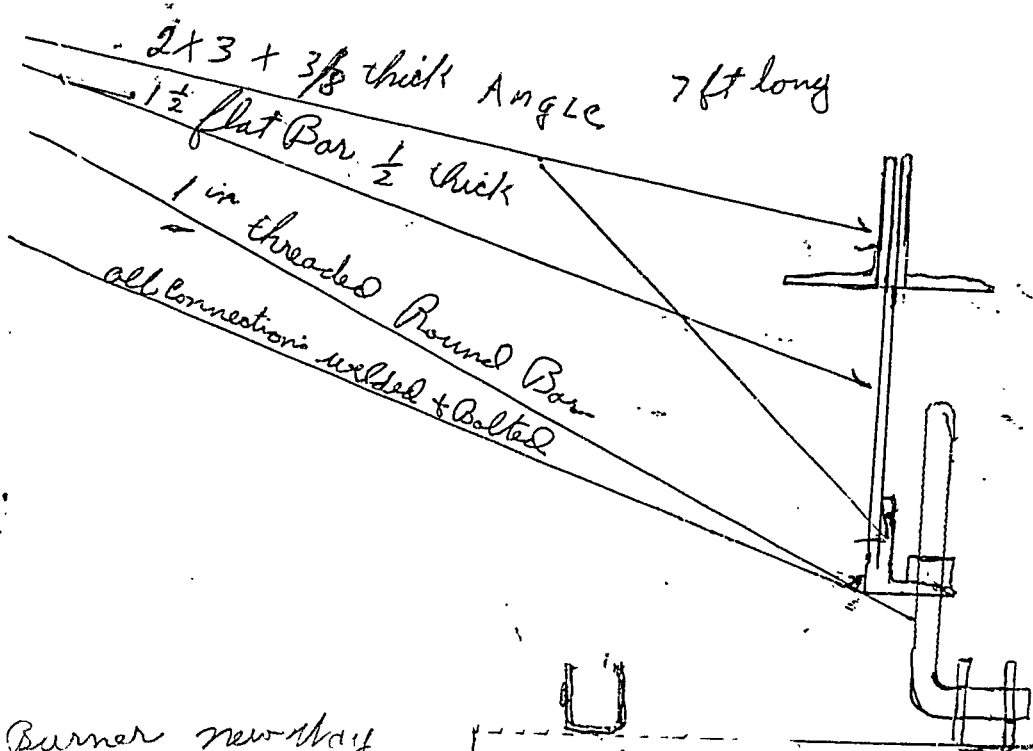 2 x 3 + 3/8 thick Angle 7 ft long
1 1/2 flat Bar 1/2 thick
1 in threaded Round Bar
all connections welded & Bolted
Burner new